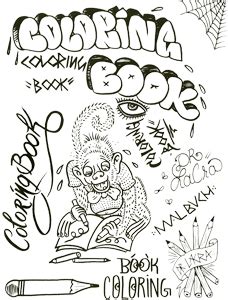 COLORING
COLORING
"BOOK"
BOOK
COLORING
BOOK
Coloring Book
MALBUCH
BOOK
COLORING